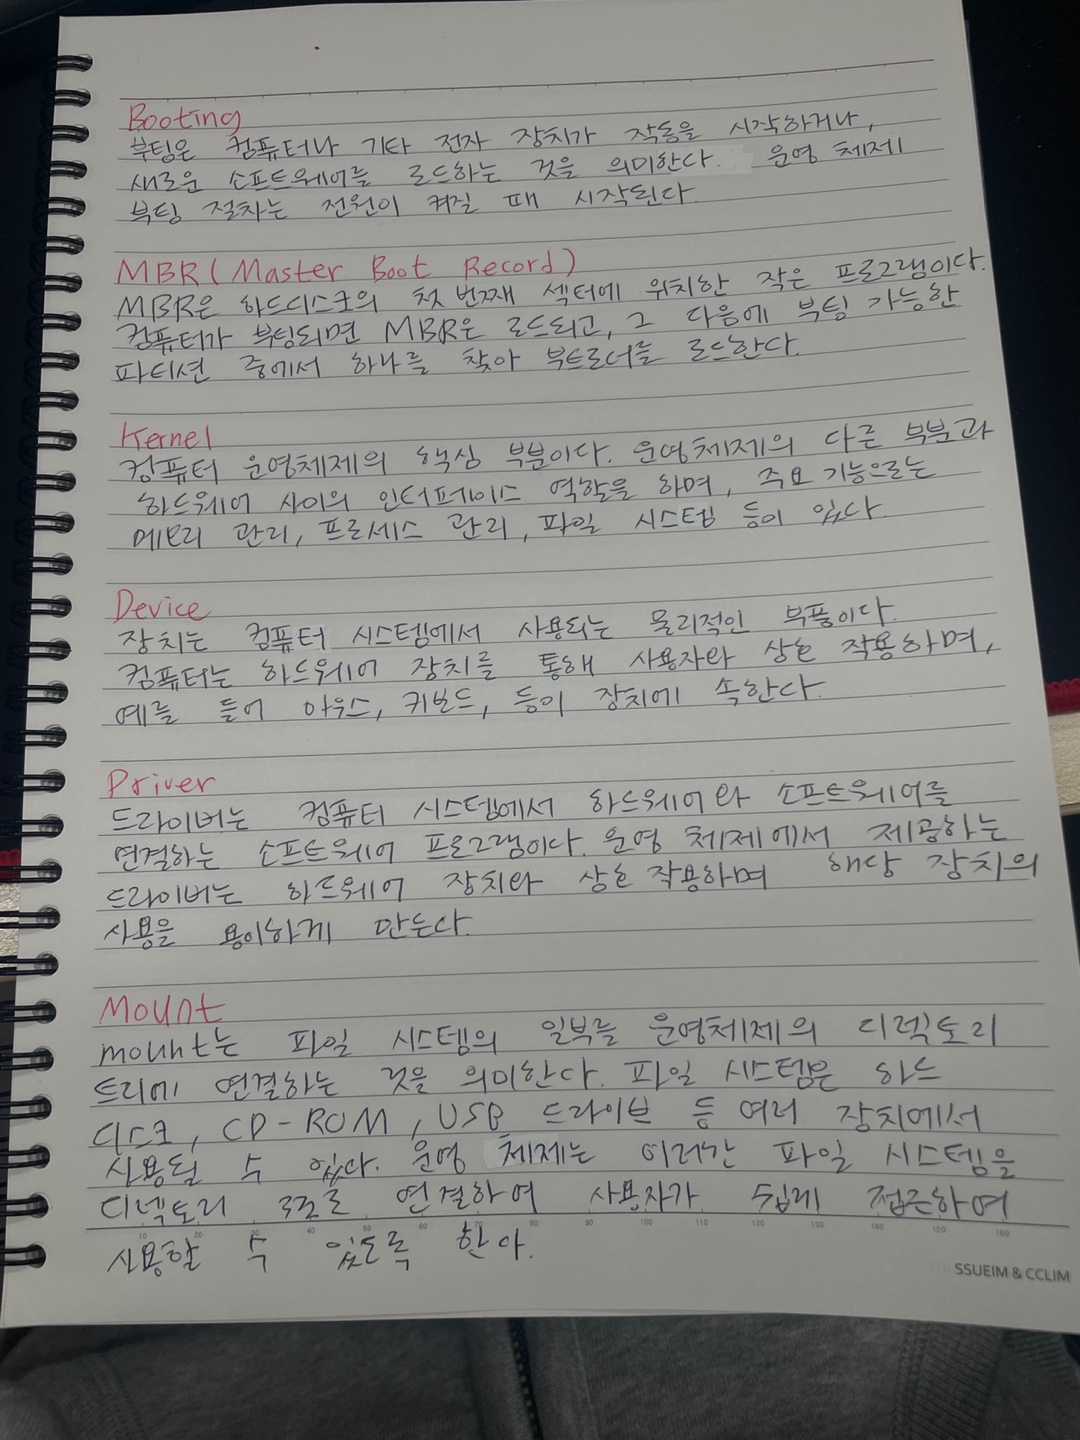 Booting
부팅은 컴퓨터나 기타 전자 장치가 작동을 시작하거나,
새로운 소프트웨어를 로드하는 것을 의미한다. 운영 체제
부팅 절차는 전원이 켜질 때 시작된다.
MBR (Master Boot Record)
MBR은 하드디스크의 첫 번째 섹터에 위치한 작은 프로그램이다.
컴퓨터가 부팅되면 MBR은 로드되고, 그 다음에 부팅 가능한
파티션 중에서 하나를 찾아 부트로더를 로드한다.
Kernel
컴퓨터 운영체제의 핵심 부분이다. 운영체제의 다른 부분과
하드웨어 사이의 인터페이스 역할을 하며, 주요 기능으로는
메모리 관리, 프로세스 관리, 파일 시스템 등이 있다.
Device
장치는 컴퓨터 시스템에서 사용되는 물리적인 부품이다.
컴퓨터는 하드웨어 장치를 통해 사용자와 상호 작용하며,
예를 들어 마우스, 키보드, 등이 장치에 속한다.
Driver
드라이버는 컴퓨터 시스템에서 하드웨어와 소프트웨어를
연결하는 소프트웨어 프로그램이다. 운영 체제에서 제공하는
드라이버는 하드웨어 장치와 상호 작용하며 해당 장치의
사용을 용이하게 만든다.
Mount
mount는 파일 시스템의 일부를 운영체제의 디렉토리
트리에 연결하는 것을 의미한다. 파일 시스템은 하드
디스크, CD-ROM, USB 드라이브 등 여러 장치에서
사용될 수 있다. 운영 체제는 이러한 파일 시스템을
디렉토리 구조로 연결하여 사용자가 쉽게 접근하여
10 20 30 40 50 60 70 80 90 100 110 120 130 140 150 160
사용할 수 있도록 한다.
SSUEIM & CCLIM